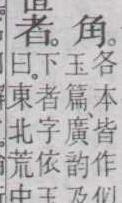 角。
各本皆作似
玉篇、廣韵及
者。
下者字依玉
曰。東北荒中